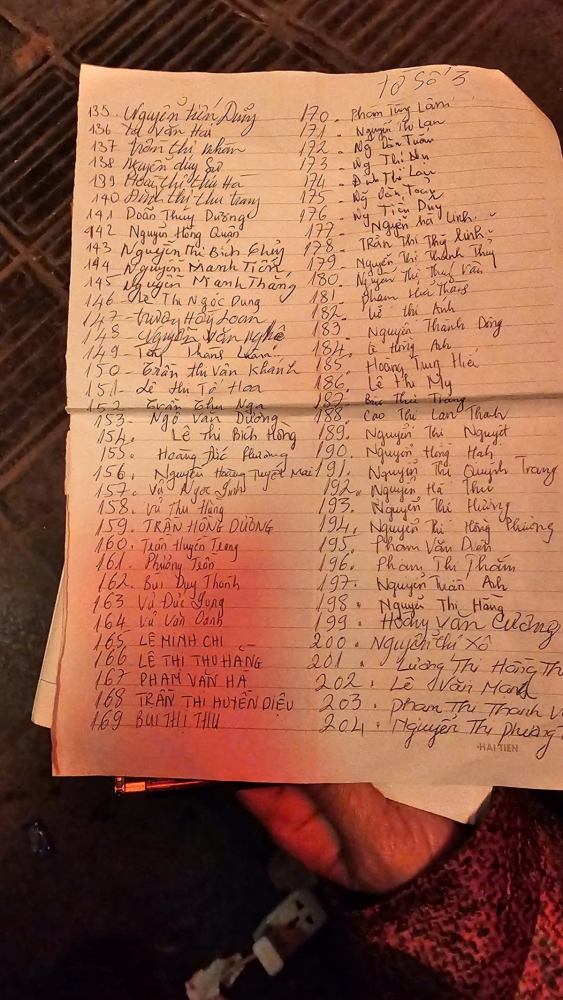 Tờ Số 3
135. Nguyễn Tiến Dũng
136 Vũ Văn Hai
137 Trần Thị Nhàn
138 Nguyễn Duy Sử
139 Phạm Thị Thu Hà
140 Đinh Thị Thu Trang
141 Doãn Thuỳ Dương
142 Nguyễn Hồng Quân
143 Nguyễn Thị Bích Thủy
144 Nguyễn Mạnh Tiến
145 Nguyễn Mạnh Thắng
146 Thị Ngọc Dung
147 Trương Hồng Loan
148 Nguyễn Văn Nghệ
149
150 Trần Thị Vân Khánh
151 Lê Thị Tố Hoa
152 Trần Thu Nga
153 Ngô Văn Dương
154. Lê Thị Bích Hồng
155. Hoàng Đắc Phương
156. Nguyễn Hoàng Tuyết Mai
157. Vũ Ngọc
158. Vũ Thu Hằng
159. TRẦN HỒNG DƯƠNG
160. Trần Huyền Trang
161. Phương Trần
162. Bùi Duy Thanh
163 Vũ Đức Long
164 Vũ Văn Oanh
165 LÊ MINH CHI
166 LÊ THỊ THU HẰNG
167 PHẠM VĂN HÀ
168 TRẦN THỊ HUYỀN DIỆU
169 BÙI THỊ THU
170. Phạm Tùng Lâm
171. Nguyễn Thị Lan
172. Ng Văn Tuấn
173. Ng Thị
174. Đinh Thị Lan
175. Ng Văn Toàn
176. Ng Tiến Duy
177. Nguyễn Hà Linh
178. Trần Thị Thùy Linh
179. Nguyễn Thị Thanh Thủy
180. Nguyễn Thị Thu Vân
181. Phạm Hữu Thắng
182. Vũ Thị Ánh
183 Nguyễn Thành Đông
184. Lê Hồng Anh
185. Hoàng Trung Hiếu
186. Lê Thị My
187. Bùi Thu Trang
188. Cao Thị Lan Thanh
189. Nguyễn Thị Nguyệt
190. Nguyễn Hồng Hạnh
191. Nguyễn Thị Quỳnh Trang
192. Nguyễn Hà Thu
193. Nguyễn Thị Hương
194. Nguyễn Thị Hồng Phương
195. Phạm Văn Diễn
196. Phạm Thị Thắm
197. Nguyễn Tuấn Anh
198. Nguyễn Thị Hằng
199. Hoàng Văn Cường
200. Nguyễn Thị Xô
201. Lương Thị Hồng
202. Lê Văn Mạnh
203. Phạm Thị Thanh
204. Nguyễn Thị Phương
HẢI TIẾN